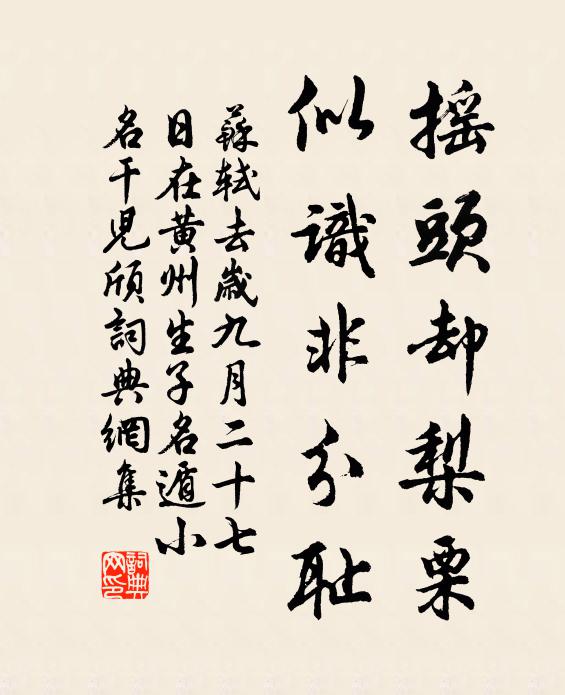 摇頭却梨栗
似識非分耻
蘇軾去歲九月二十七
日在黄州生子名遁小
名干兒頎詞典網集
詞典網印